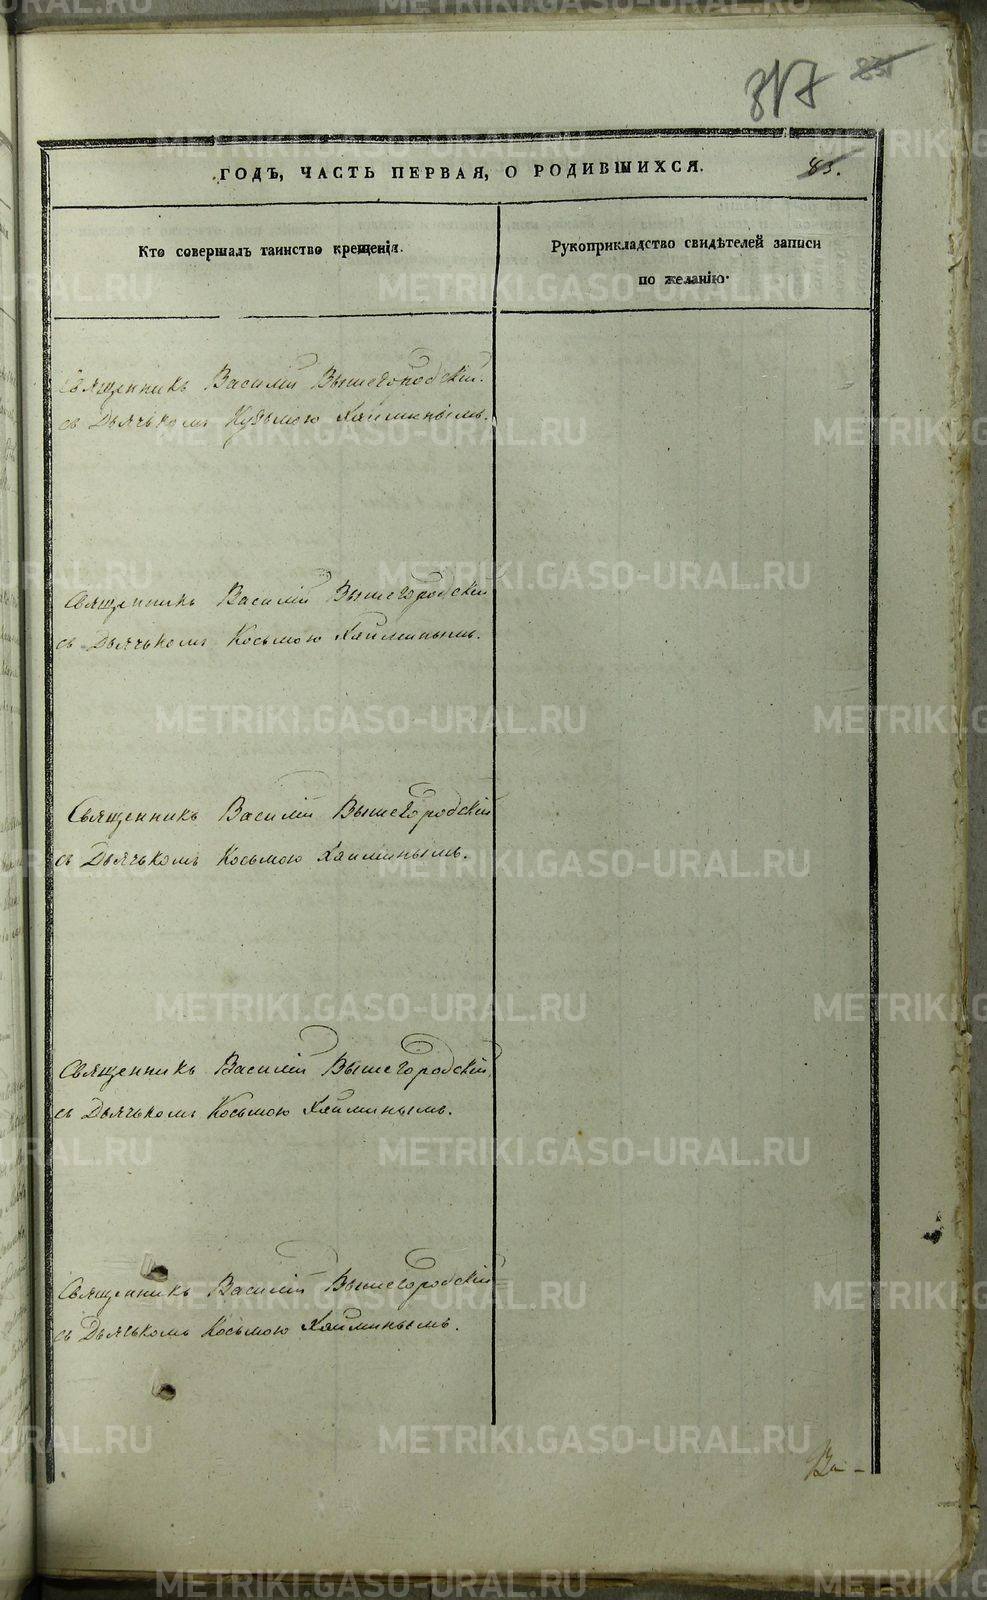 317 831
ГОДЪ, ЧАСТЬ ПЕРВАЯ, О РОДИВШИХСЯ. 83.
Кто совершалъ таинство крещенія.
Рукоприкладство свидѣтелей записи
по желанію.
Священникъ Василій Вышегородскій.
съ Дьячькомъ Кузьмою Хяйминымъ.
Священникъ Василій Вышегородскій
съ Дьячькомъ Косьмою Хяйминымъ.
Священникъ Василій Вышегородскій
съ Дьячькомъ Косьмою Хяйминымъ.
Священникъ Василій Вышегородскій,
съ Дьячькомъ Косьмою Хяйминымъ.
Священникъ Василій Вышегородскій
съ Дьячькомъ Косьмою Хяйминымъ.
Ва-
METRIKI.GASO-URAL.RU